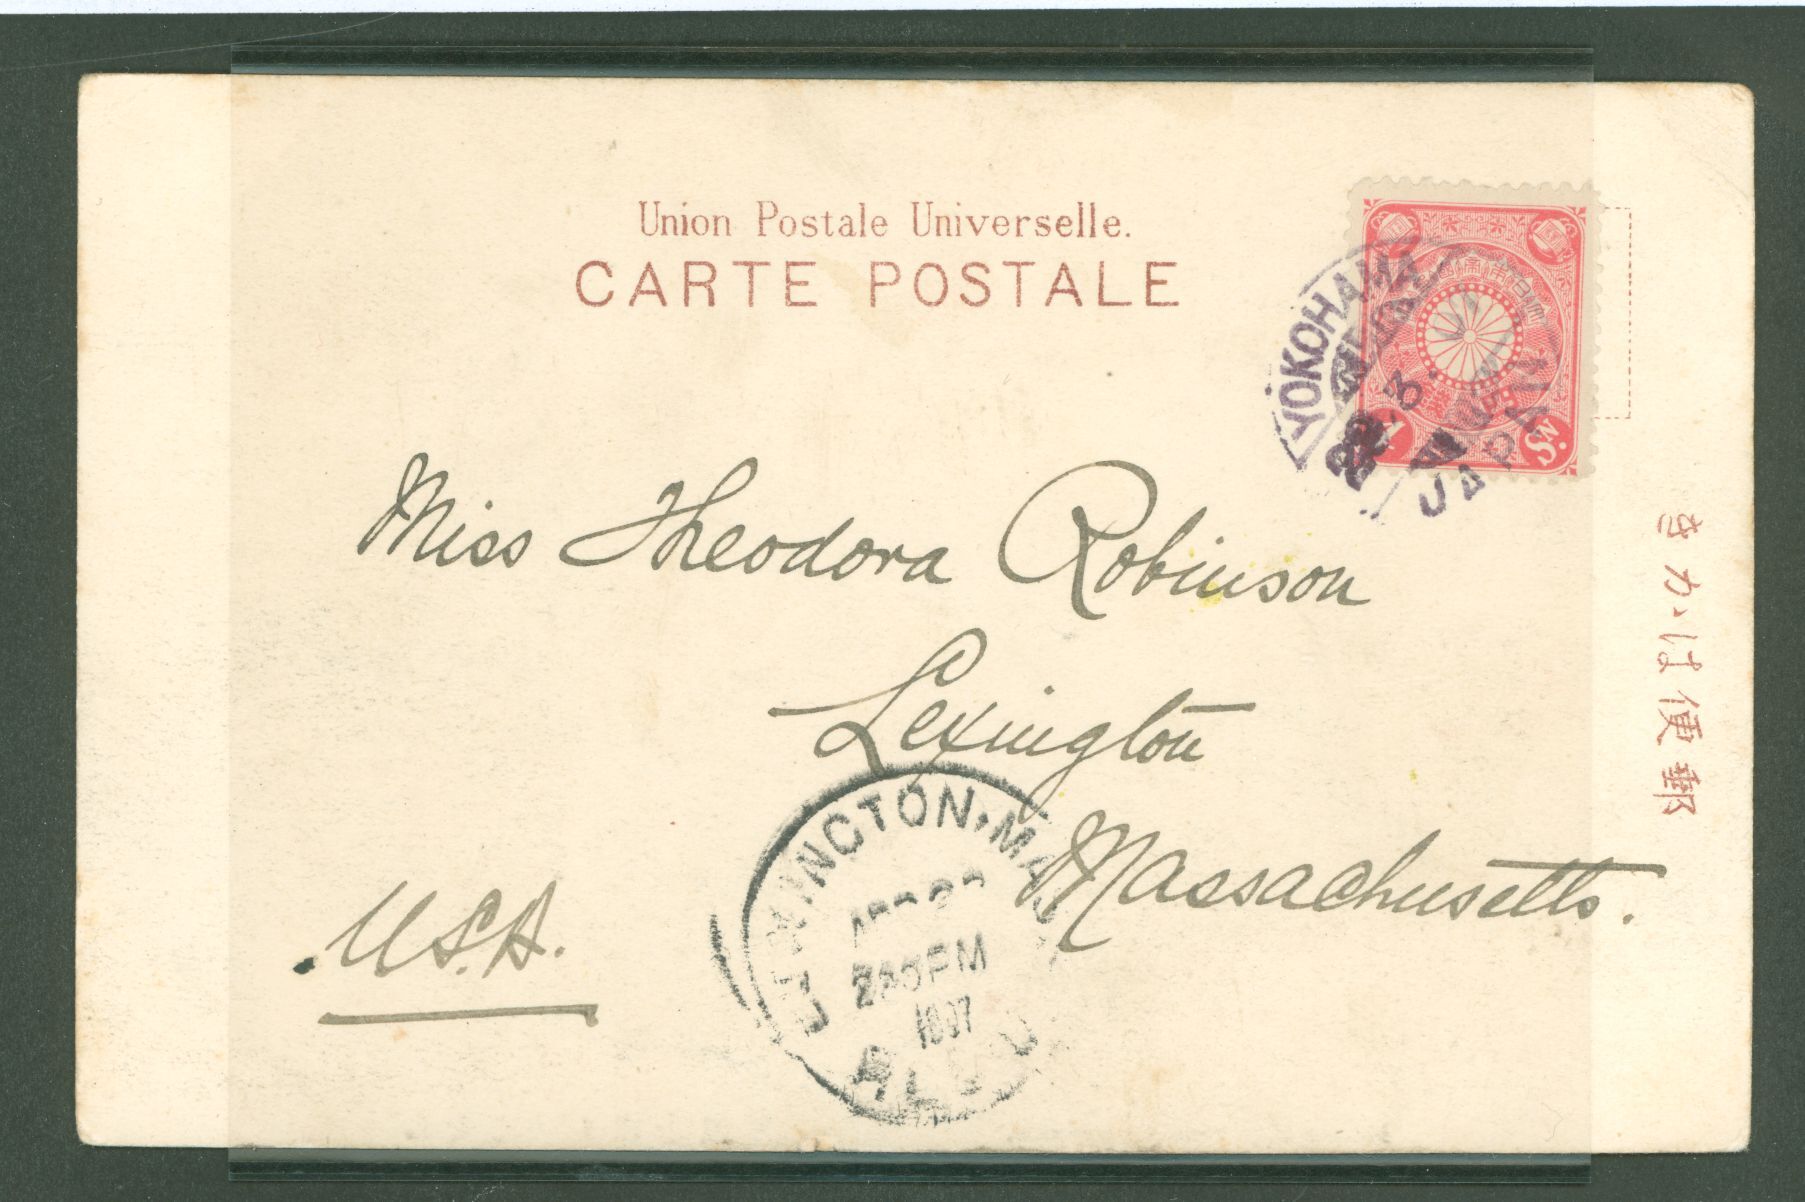 Union Postale Universelle.
CARTE POSTALE
YOKOHAMA
3
JAPAN
4 Sn.
郵便はかき
Miss Theodora Robinson
Lexington
Massachusetts.
U.S.A.
LEXINGTON, MASS.
230 PM
1907
REC'D